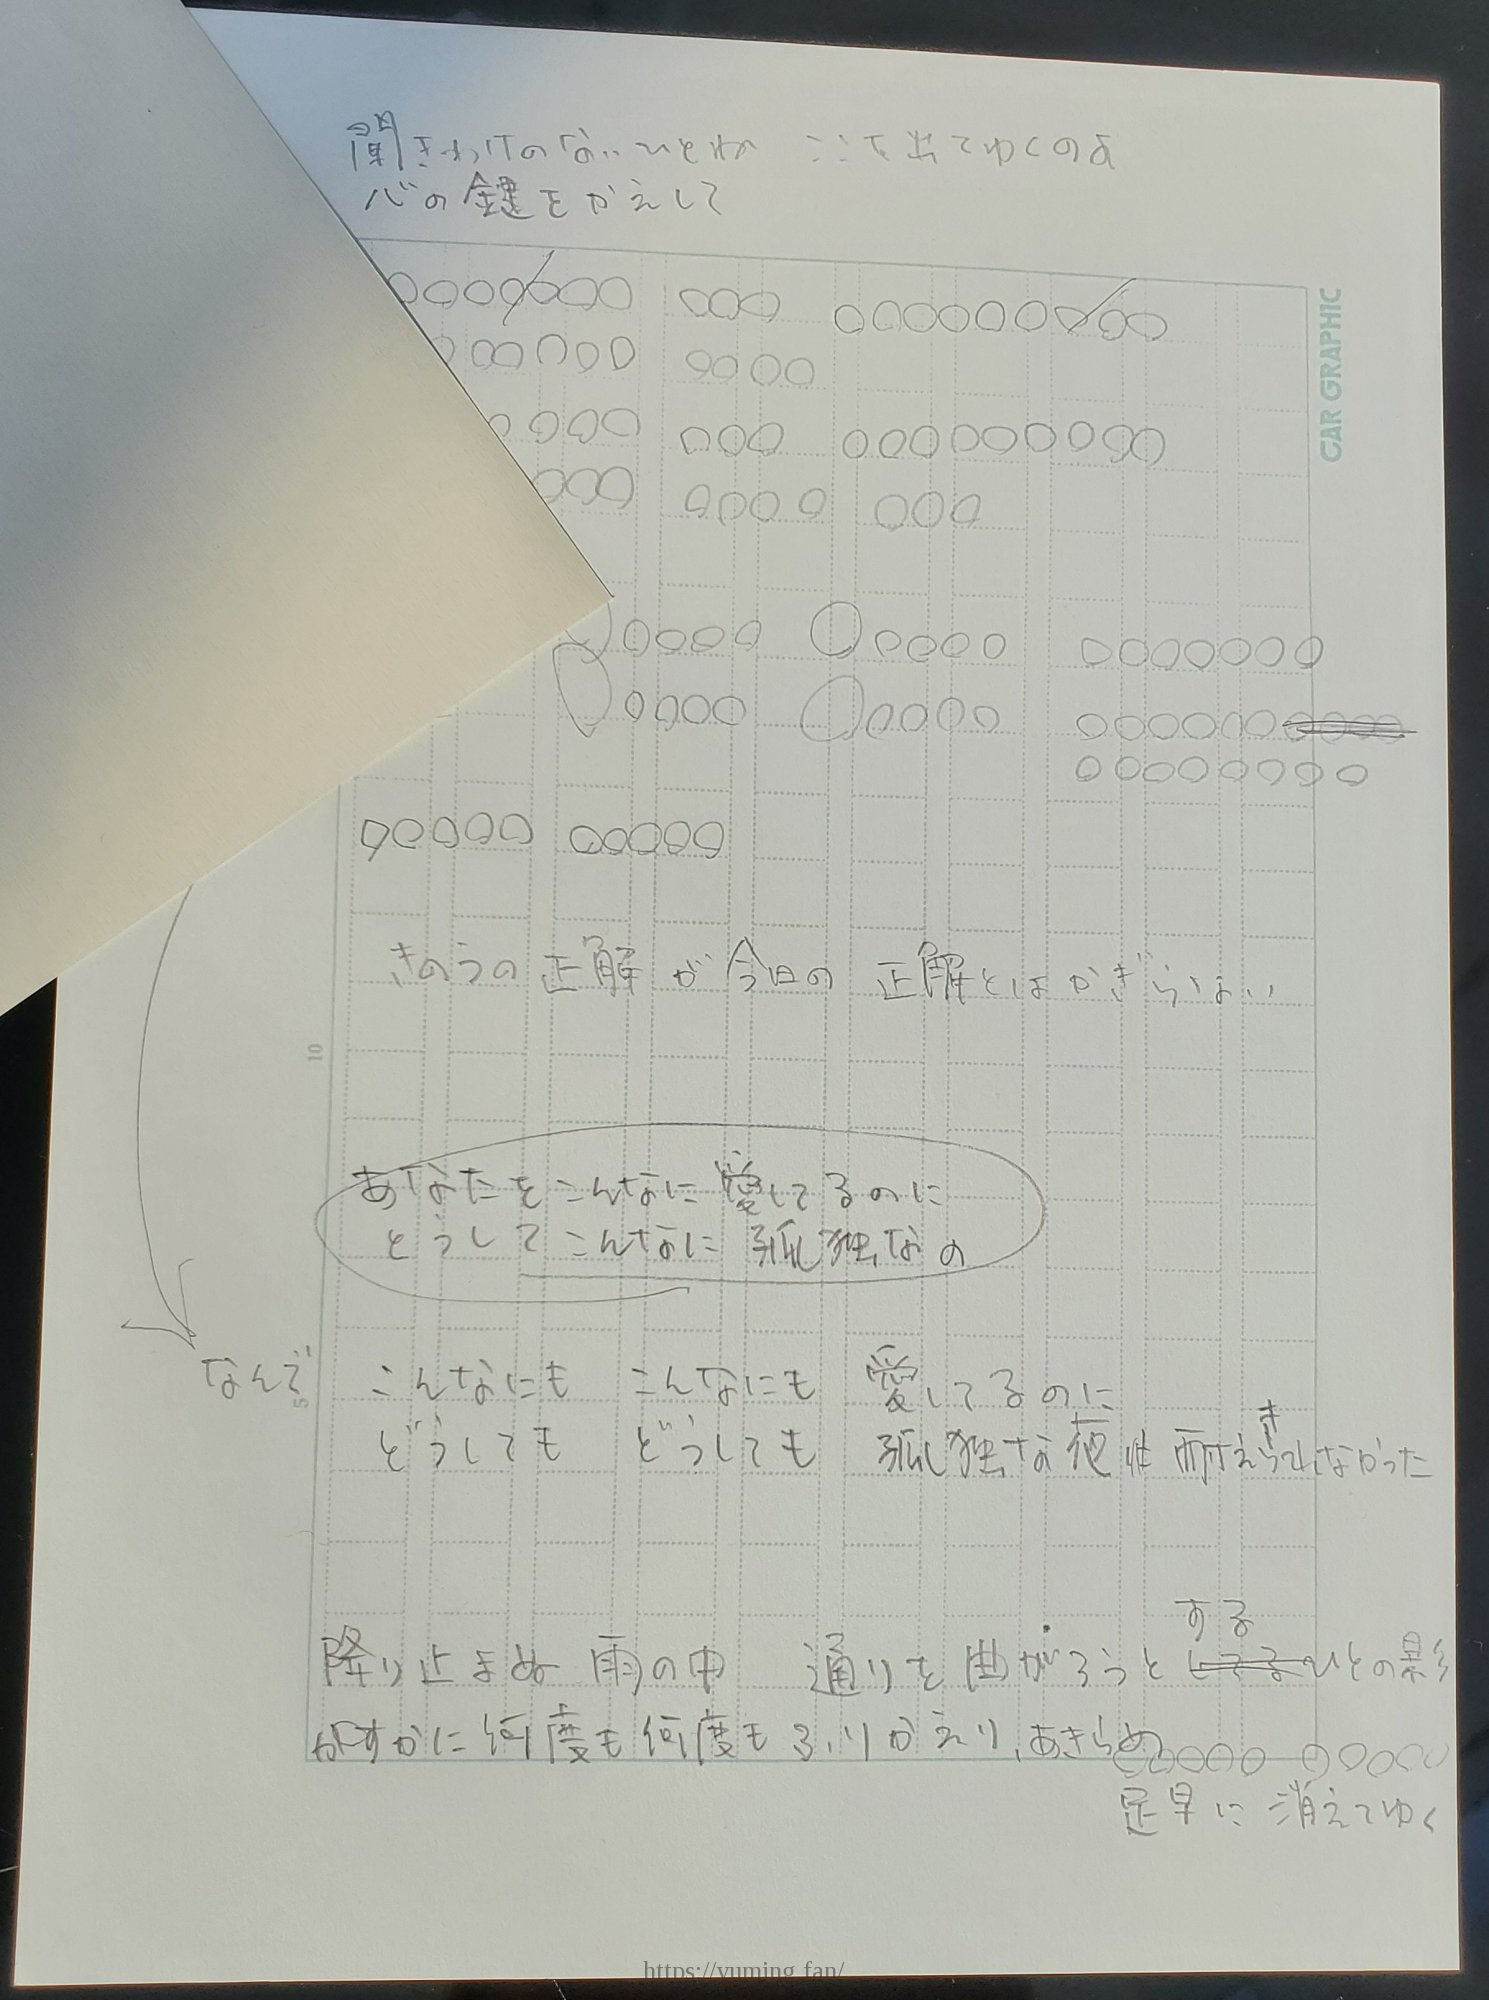 聞きわけのないひとね ここを出てゆくのよ
心の鍵をかえして
CAR GRAPHIC
きのうの正解が今日の 正解とはかぎらない
10
あなたをこんなに愛してるのに
どうしてこんなに 孤独なの
なんで こんなにも こんなにも 愛してるのに
5
どうしても どうしても 孤独な夜は 耐えきれなかった
する
降り止まぬ 雨の中 通りを曲がろうと してる ひとの影
かすかに 何度も何度もふりかえり、あきらめ
足早に 消えてゆく
https://yuming.fan/